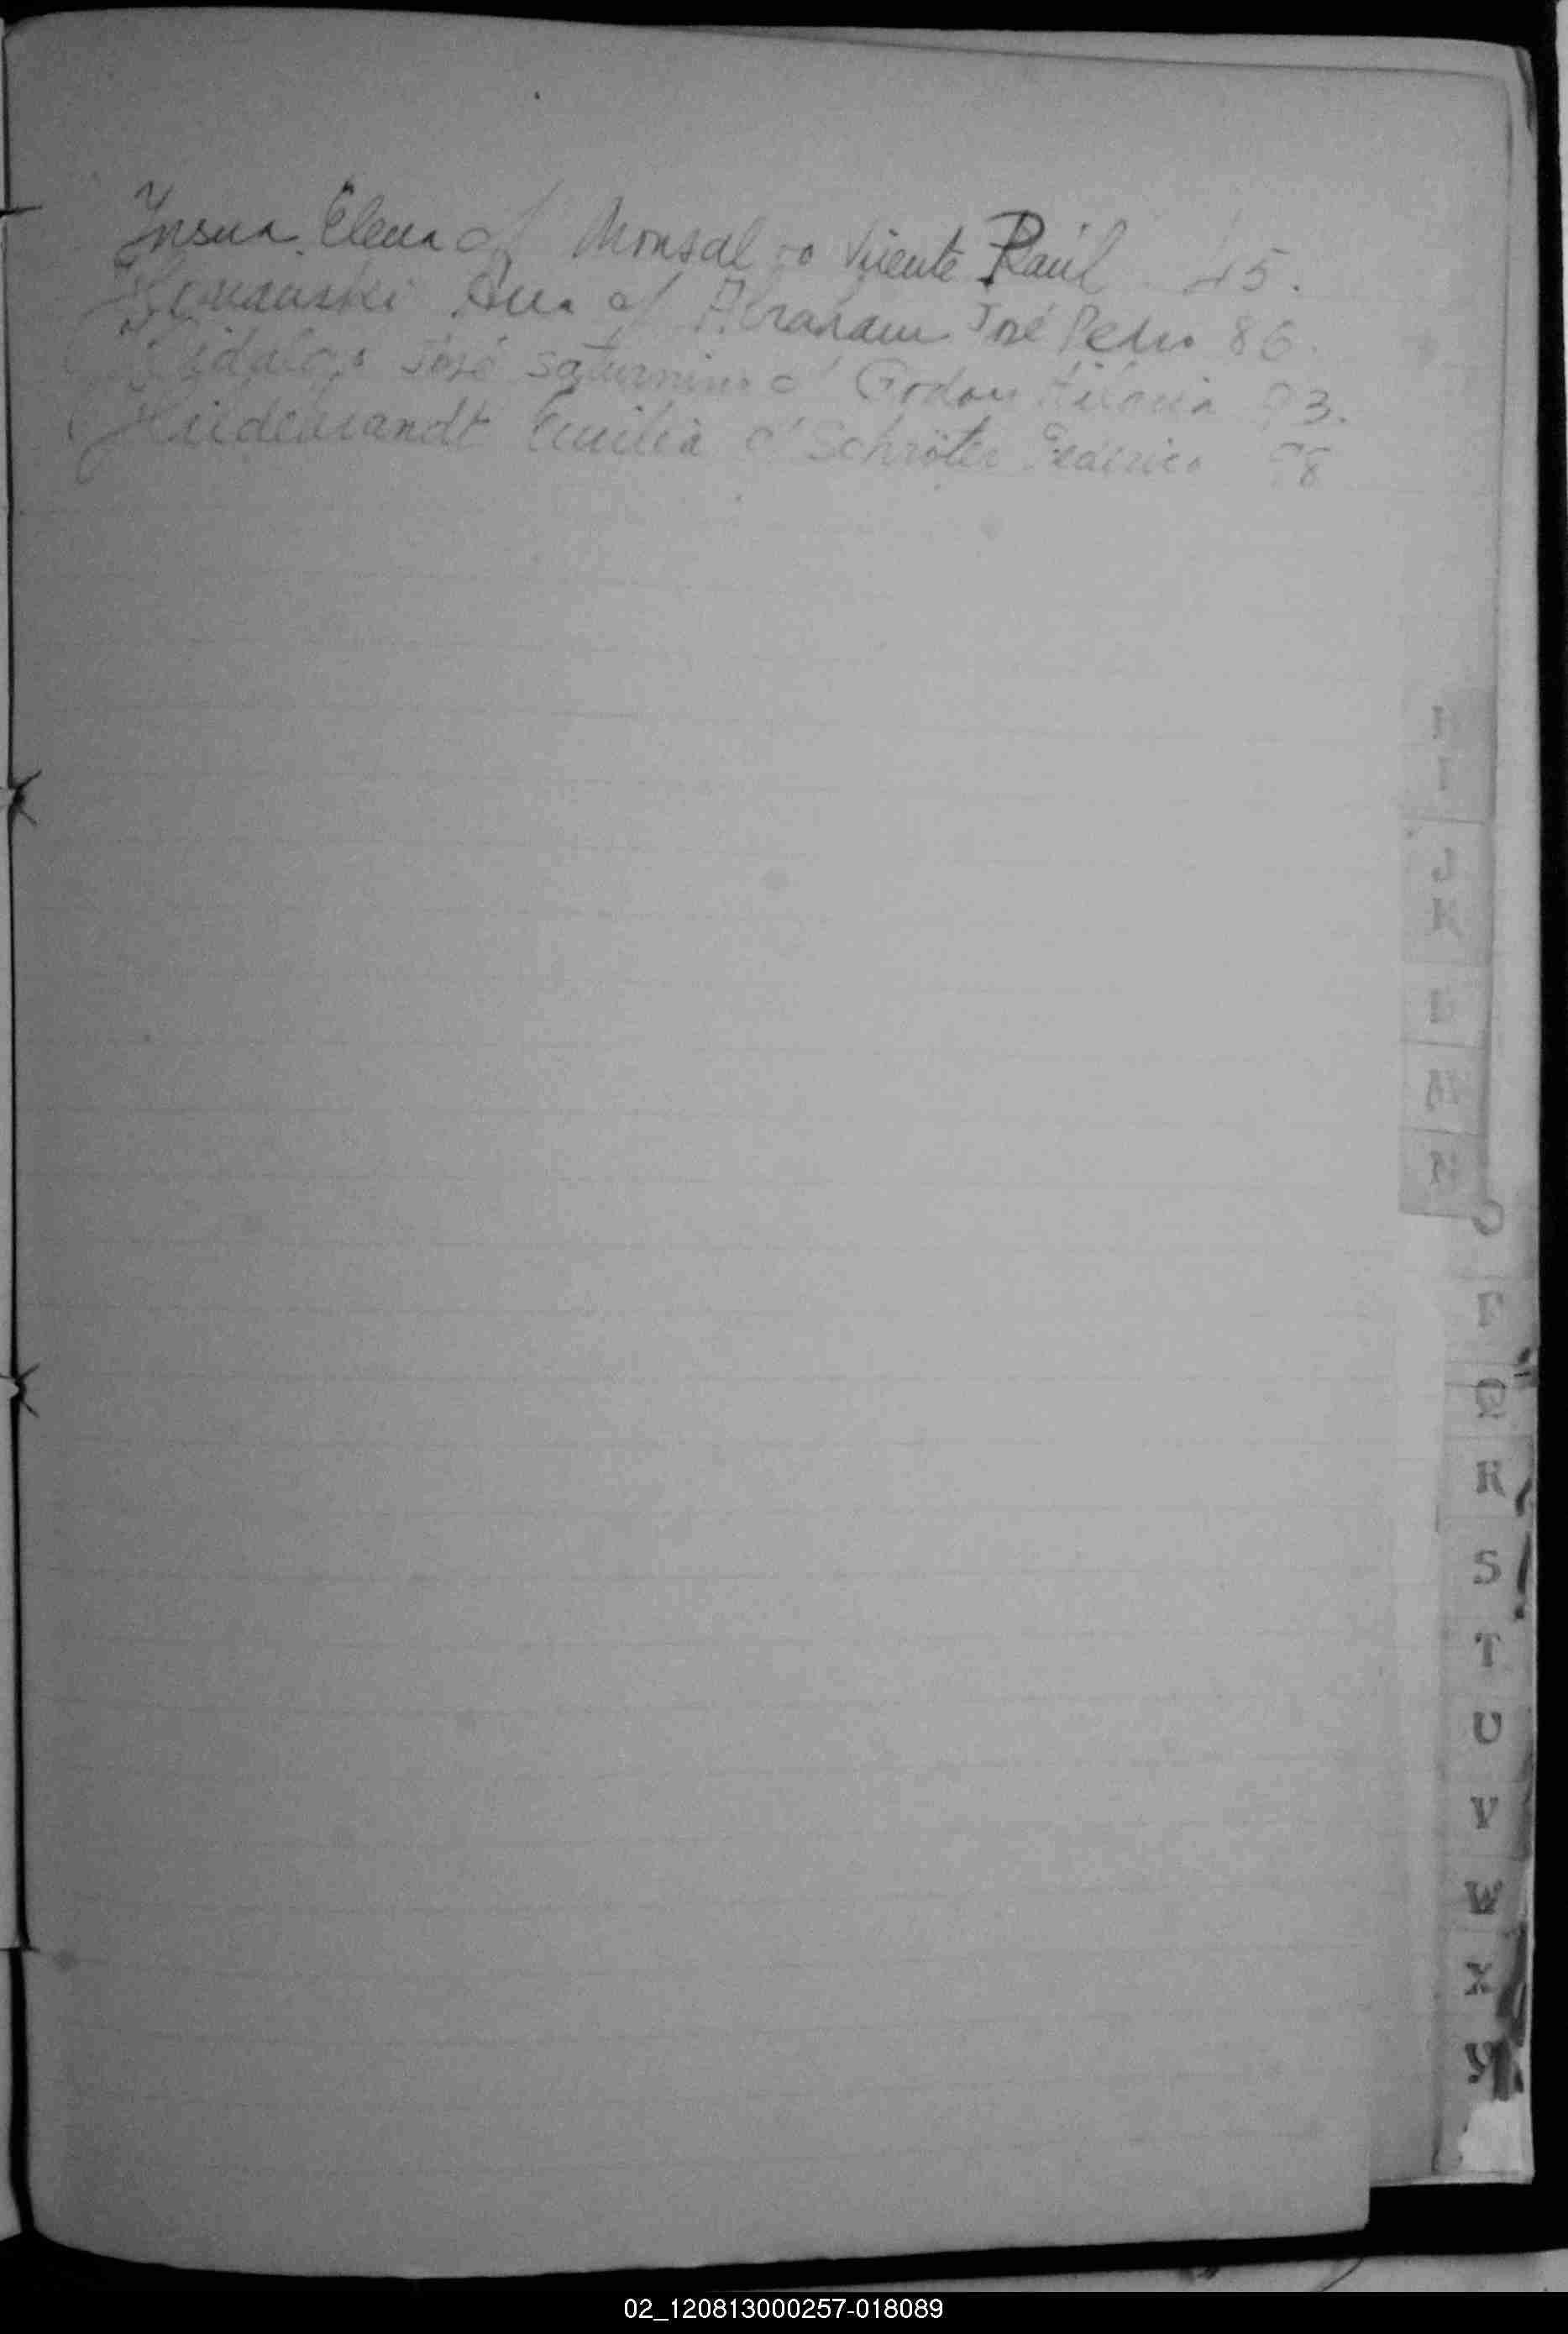 Ynsua Elena c/ Monsalvo Vicente Raúl 45.
Ana c/ Abraham José Pedro 86.
Hidalgo José Saturnino c/ Godoy Hilaria 93.
Hildebrandt Emilia c/ Schröter Federico 98
H
I
J
K
L
M
N
O
P
Q
R
S
T
U
V
W
X
Y
02_120813000257-018089